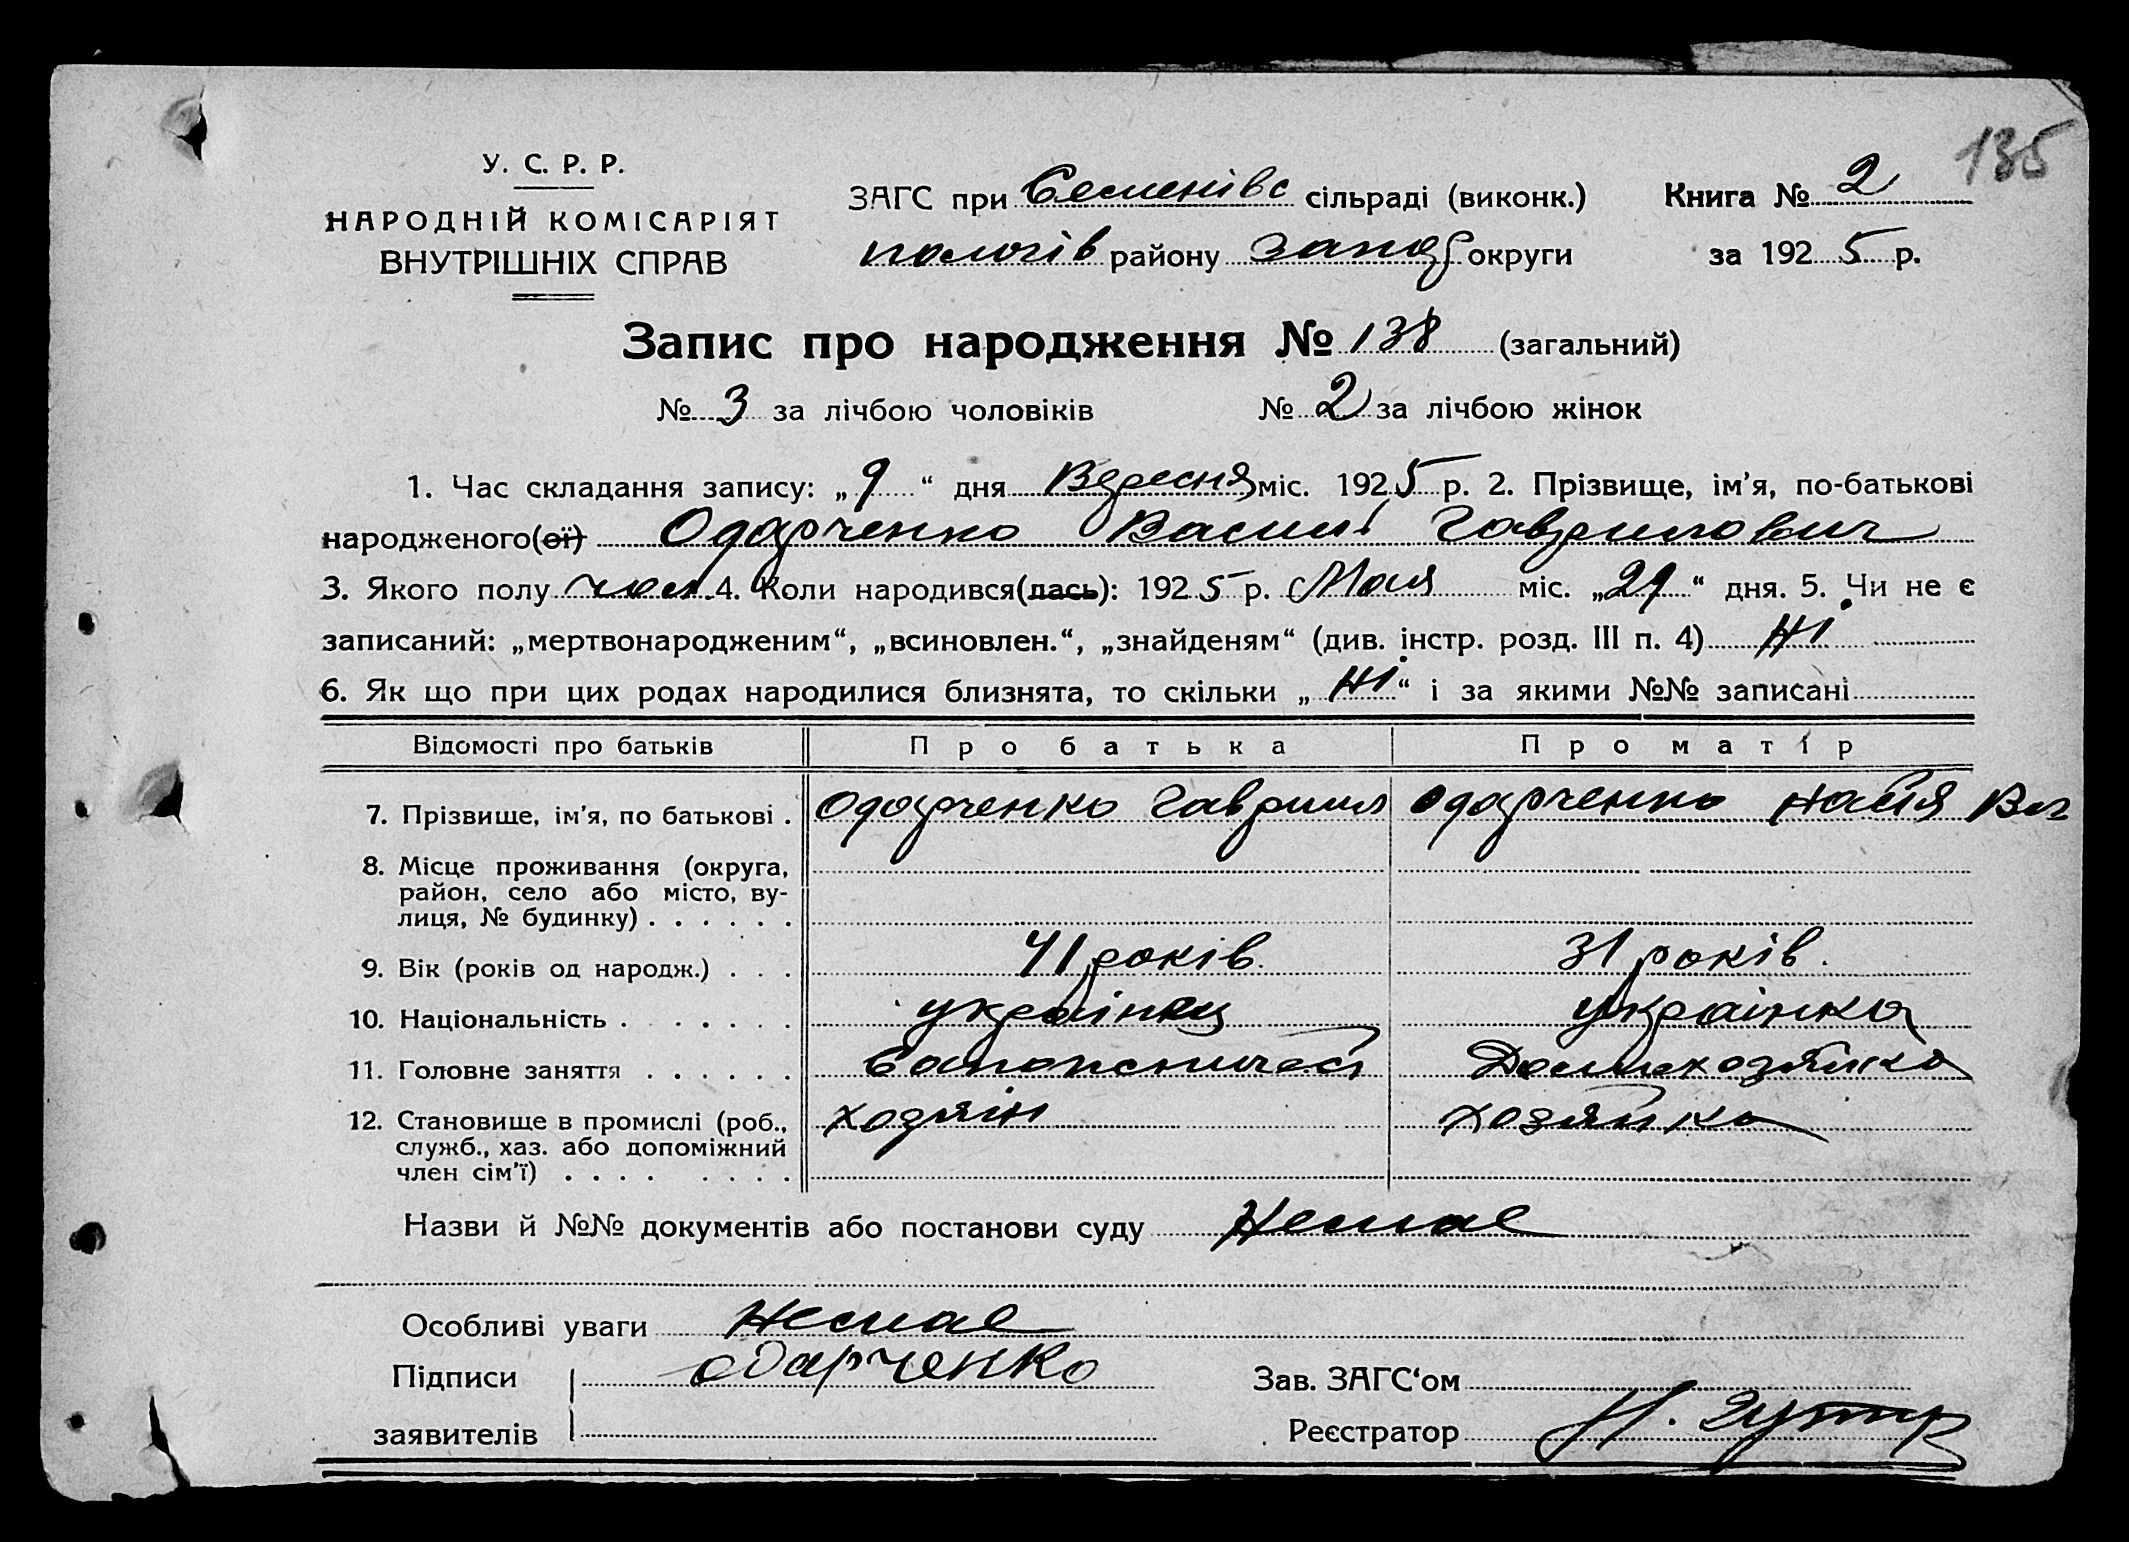 135
У. С. Р. Р.
НАРОДНІЙ КОМІСАРІЯТ
ВНУТРІШНІХ СПРАВ
ЗАГС при Семенівс сільраді (виконк.)
пологів району запор округи
Книга № 2
за 1925 р.
Запис про народження № 138 (загальний)
№ 3 за лічбою чоловіків № 2 за лічбою жінок
1. Час складання запису: „9“ дня Вересня міс. 1925 р. 2. Прізвище, ім'я, по-батькові
народженого(ої) Одарченко Василь Гаврилович
3. Якого полу чол. 4. Коли народився(лась): 1925 р. Мая міс. „29“ дня. 5. Чи не є
записаний: „мертвонародженим“, „всиновлен.“, „знайденям“ (див. інстр. розд. III п. 4) Ні
6. Як що при цих родах народилися близнята, то скільки „Ні“ і за якими №№ записані
Відомості про батьків Про батька Про матір
7. Прізвище, ім'я, по батькові . Одарченко Гаврило Одарченко
8. Місце проживання (округа,
район, село або місто, ву-
лиця, № будинку) . . . . . .
9. Вік (років од народж.) . . . 41 років. 31 років.
10. Національність . . . . . . . українец українка
11. Головне заняття . . . . . . Домохозяйка
12. Становище в промислі (роб., хозяін хозяйка
служб., хаз. або допоміжний
член сім'ї) . . . . . . . .
Назви й №№ документів або постанови суду Немае
Особливі уваги Немае
Підписи Одарченко
заявителів
Зав. ЗАГС'ом
Реєстратор